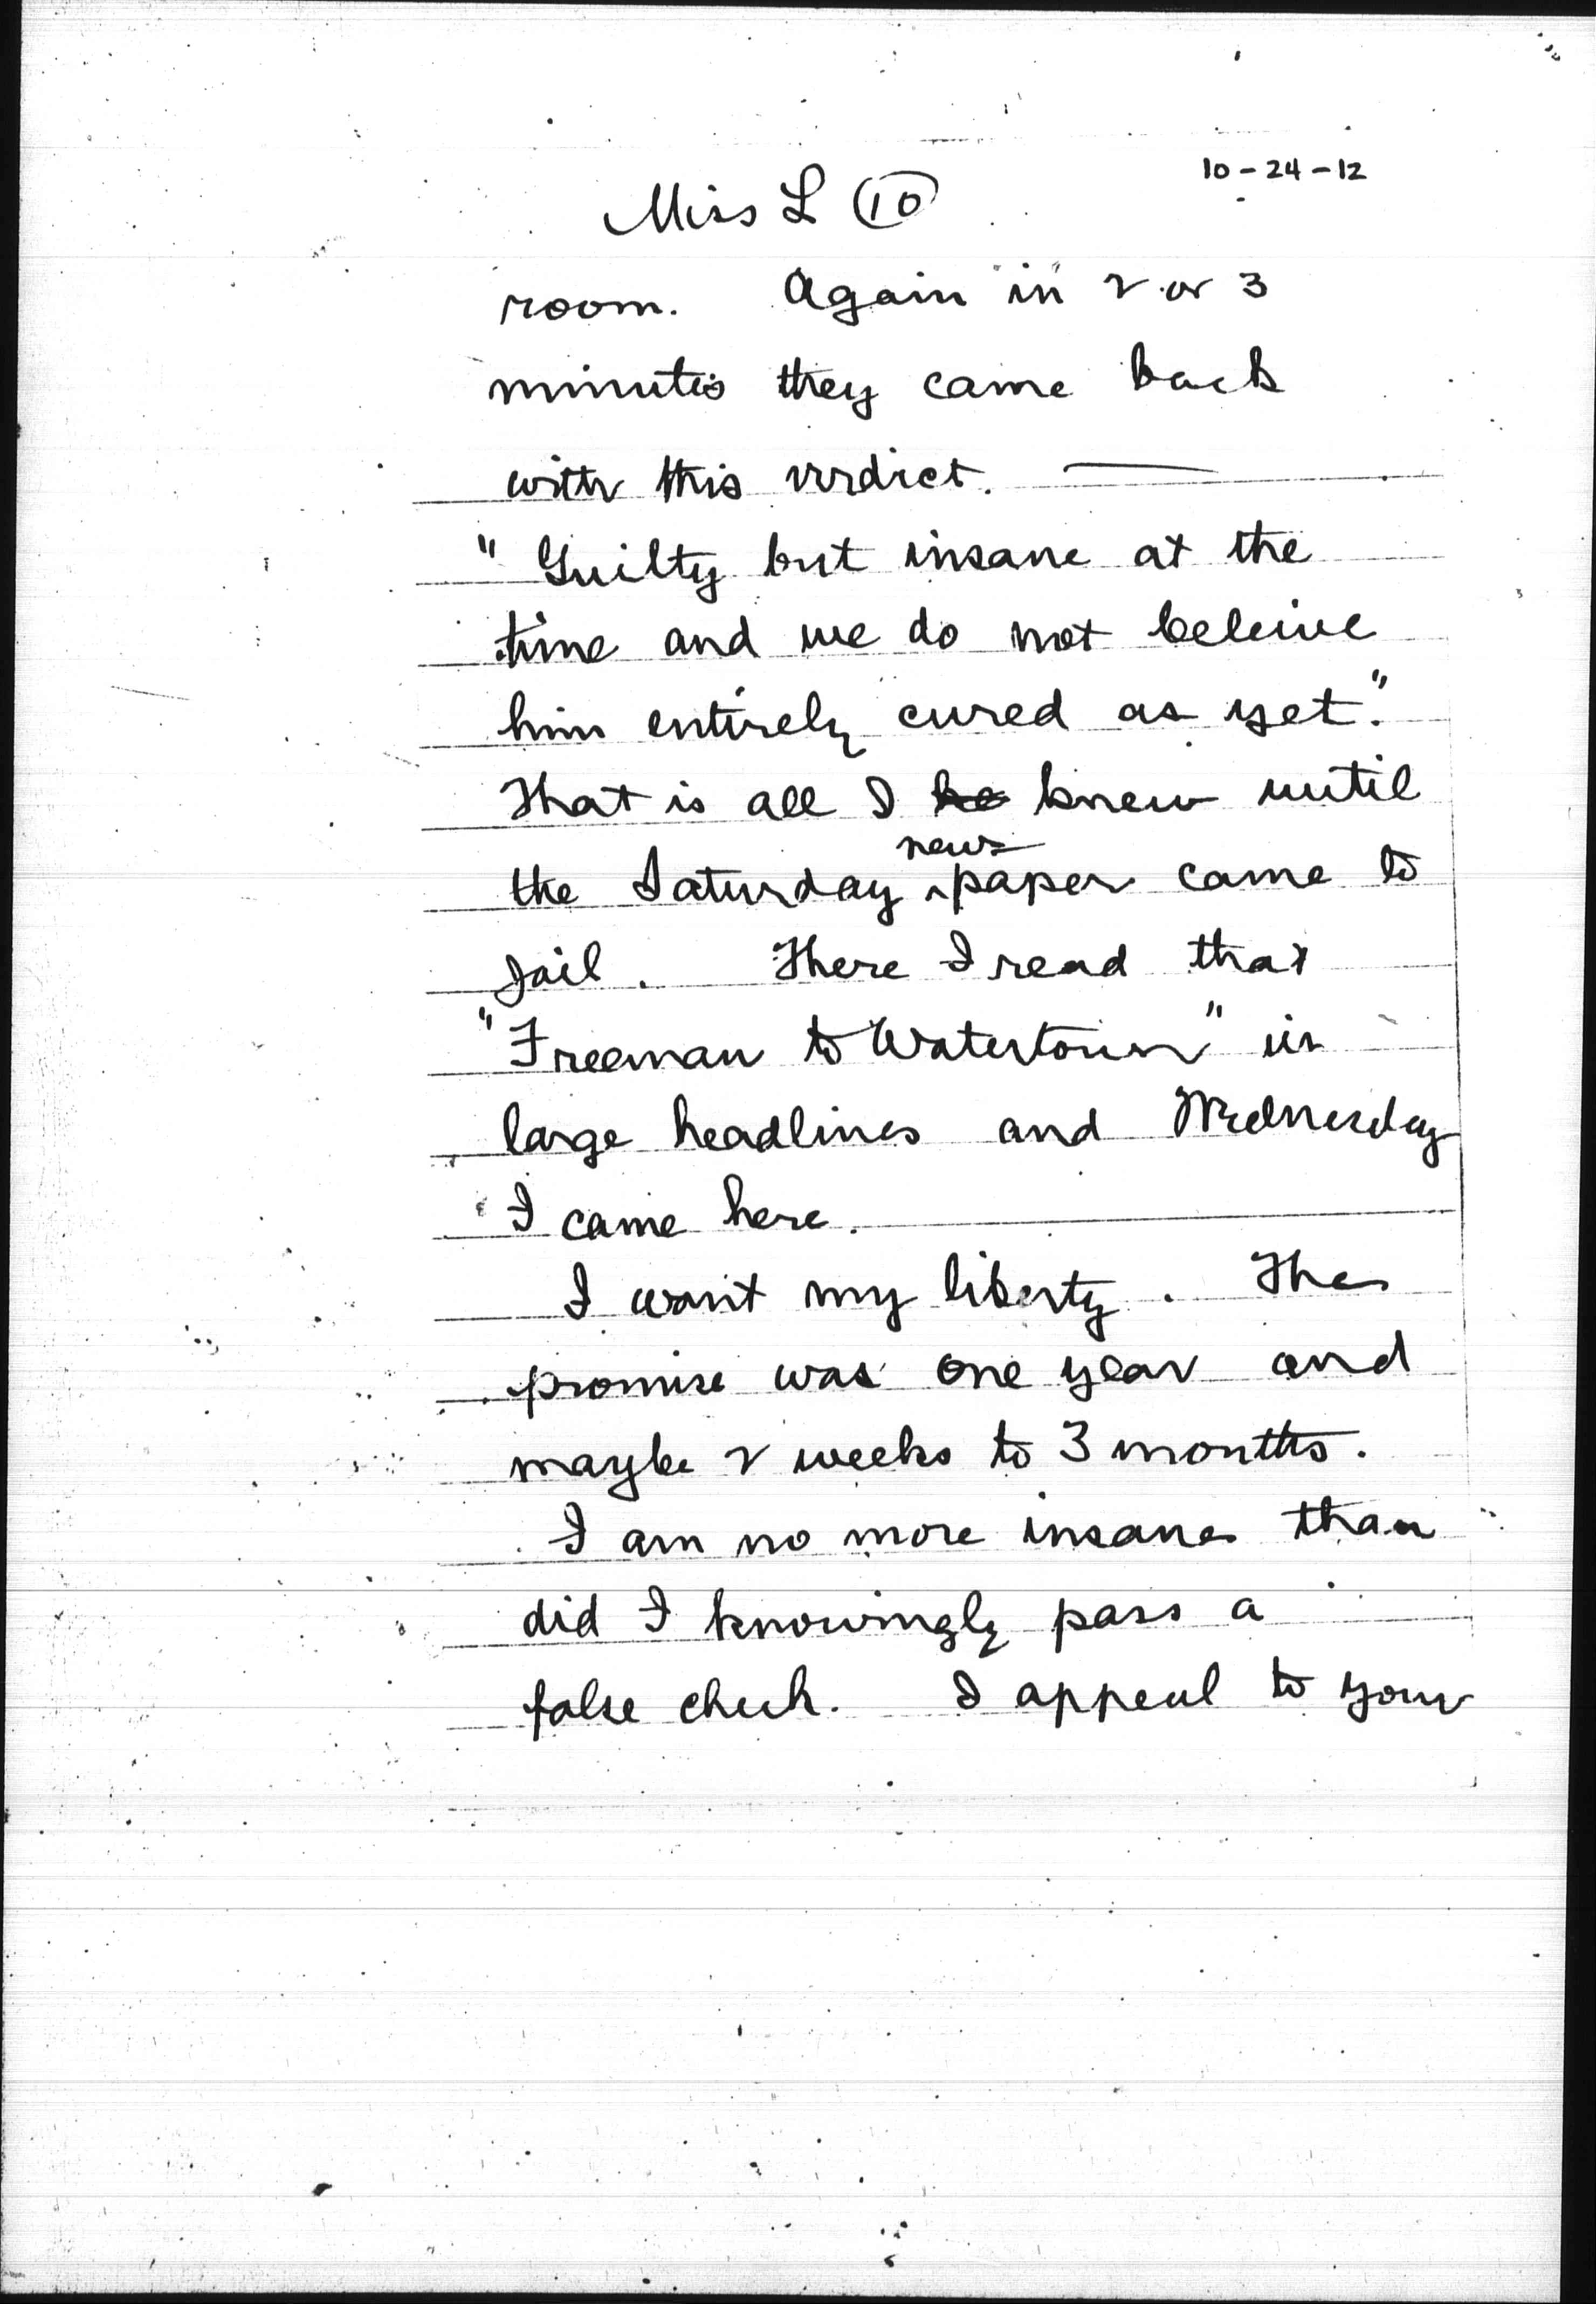 10-24-12
Miss L (10)
room. Again in 2 or 3
minutes they came back
with this verdict. —
"Guilty but insane at the
time and we do not beleive
him entirely cured as yet."
That is all I knew until
news
the Saturday paper came to
jail. There I read that
"Freeman to Watertown" in
large headlines and Wednesday
I came here.
I want my liberty. The
promise was one year and
maybe 2 weeks to 3 months.
I am no more insane than
did I knowingly pass a
false check. I appeal to your